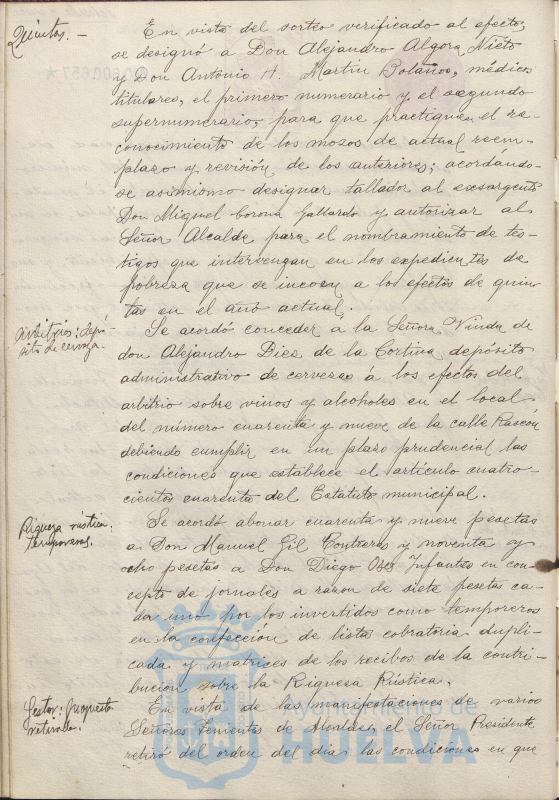 Quintos. —
En vista del sorteo verificado al efecto,
se designó a Don Alejandro Algora Nieto
y Don Antonio H. Martín Bolaños, médicos
titulares, el primero numerario y el segundo
supernumerario, para que practiquen el re-
conocimiento de los mozos de actual reem-
plazo y revisión de los anteriores; acordando-
se asimismo designar tallador al exsargento
Don Miguel Corona Gallardo y autorizar al
Señor Alcalde para el nombramiento de tes-
tigos que intervengan en los expedientes de
pobreza que se incoen a los efectos de quin-
tas en el año actual.
Arbitrios: depó-
sito de cerveza.
Se acordó conceder a la Señora Viuda de
don Alejandro Diez de la Cortina depósito
administrativo de cervezas á los efectos del
arbitrio sobre vinos y alcoholes en el local
del número cuarenta y nueve de la calle Rascón
debiendo cumplir en un plazo prudencial las
condiciones que establece el artículo cuatro-
cientos cuarenta del Estatuto municipal.
Riqueza rústica:
temporeros.
Se acordó abonar cuarenta y nueve pesetas
a Don Manuel Gil Contreras y noventa y
ocho pesetas a Don Diego Infantes en con-
cepto de jornales a razon de siete pesetas ca-
da uno por los invertidos como temporeros
en la confeccion de listas cobratoria dupli-
cada y matrices de los recibos de la contri-
bucion sobre la Riqueza Rústica.
Gestor: propuesta
retirada.
En vista de las manifestaciones de varios
Señores Tenientes de Alcalde, el Señor Presidente
retiró del orden del dia las condiciones en que
HUELVA